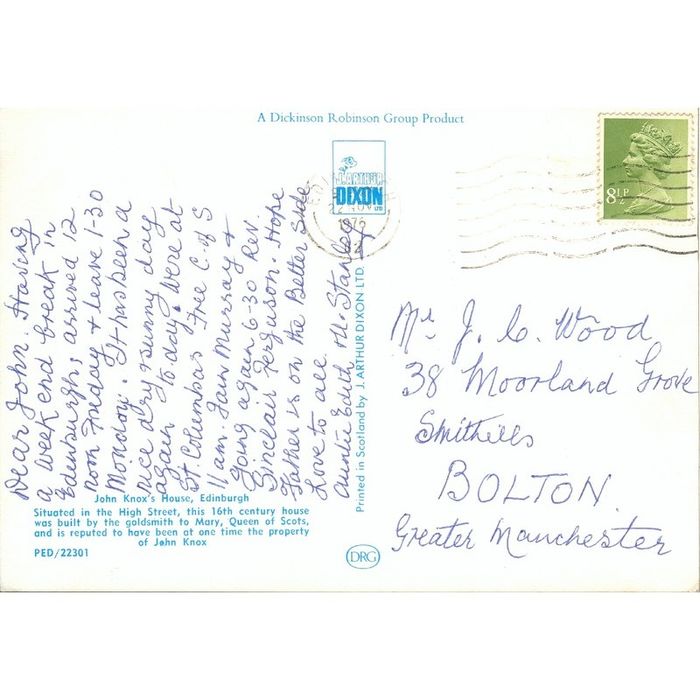 A Dickinson Robinson Group Product
J. ARTHUR
DIXON
LTD
8½P
1976
Dear John. Having
a week end break in
Edenburgh, arrived 12
noon Friday & leave 1-30
Monday. It has been a
nice dry & sunny day
again today. Were at
St. Columbas Free C. of S
11 am. Iain Murray &
going again 6-30 Rev.
Sinclair Ferguson. Hope
Father is on the Better side
Love to all
Auntie Edith, M. Stanley
Printed in Scotland by J. ARTHUR DIXON LTD.
Mr J. C. Wood
38 Moorland Grove
Smithills
BOLTON.
Greater Manchester
John Knox's House, Edinburgh
Situated in the High Street, this 16th century house
was built by the goldsmith to Mary, Queen of Scots,
and is reputed to have been at one time the property
of John Knox
PED/22301
DRG